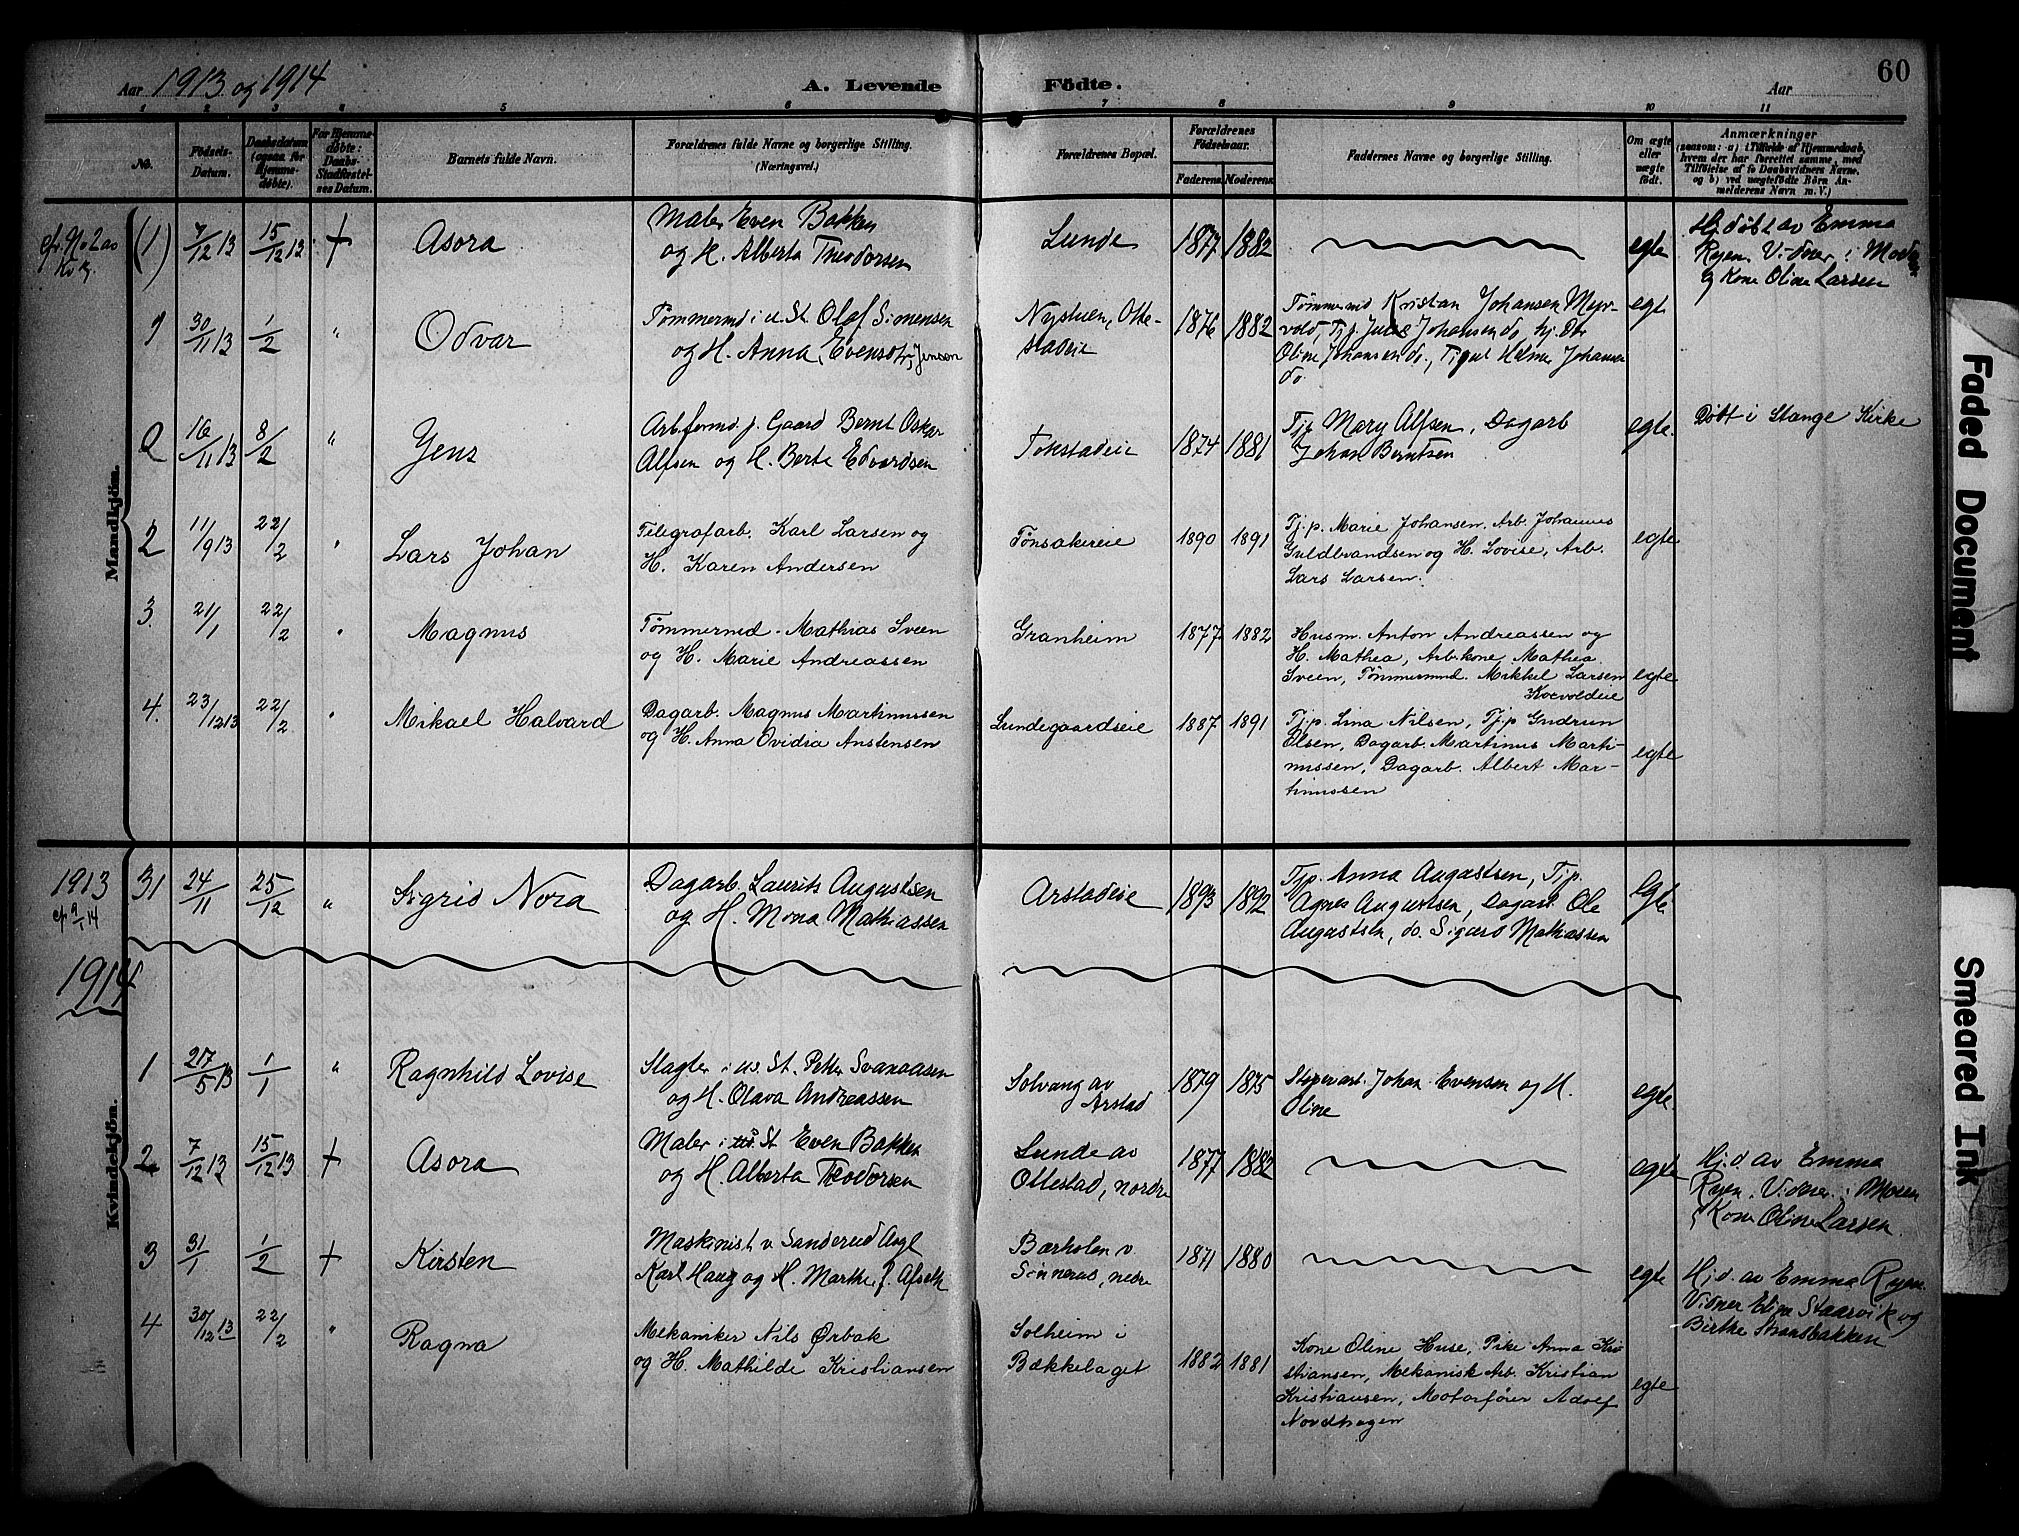 60
Aar 1913 og 1914 A. Levende Födte. Aar
1 2 3 4 5 6 7 8 9 10 11
No.
Födsels-
Datum.
Daabsdatum
(ogsaa for
Hjemme-
döbte).
For Hjemme-
döbte:
Daabs-
Stadfæstel-
ses Datum.
Barnets fulde Navn.
Forældrenes fulde Navne og borgerlige Stilling.
(Næringsvei.)
Forældrenes Bopæl.
Forældrenes
Födselsaar.
Faderens. Moderens.
Faddernes Navne og borgerlige Stilling.
Om ægte
eller
uægte
födt.
Anmærkninger
(saasom: a) i Tilfælde af Hjemmedaab,
hvem der har forrettet samme, med
Tilföielse af to Daabsvidners Navne,
og b) ved uægtefödte Börn An-
melderens Navn m. V.)
Mandkjön.
(1) 7/12 13 15/12 13 + Asora
Maler Even Bakken
og H. Alberta Theodorsen
Lunde 1877 1882 egte
Hj.döbt av Emma
Ryen. Vidner: Moderen
og Kone Oline Larsen
1 30/11 13 1/2 " Odvar
Tømmermd i u. St. Olaf Simensen
og H. Anna, Evensdtr, Jenson
Nystuen, Otte-
stadeie
1876 1882
Tømmermd Kristian Johansen Myr-
vold, Tjp. Julie Johansen do, hj. Dtr
Oline Johansen do., Tigut Helmer Johansen
do.
egte
2 16/11 13 8/2 " Jens
Arb.formd p. Gaard Bernt Oskar
Alfsen og H. Berte Edvardsen
Tokstadeie 1874 1881
Tjp Mary Alfsen, Dagarb
Johan Berntsen
egte.
Døbt i Stange Kirke
2 11/9 13 22/2 " Lars Johan
Telegrafarb. Karl Larsen og
H. Karen Andersen
Tønsakereie 1890 1891
Tj.p. Marie Johansen, Arb. Johannes
Guldbrandsen og H. Lovise, Arb.
Lars Larsen.
egte
3. 21/1 22/2 " Magnus
Tømmermd. Mathias Sveen
og H. Marie Andreassen
Granheim 1877 1882
Husm. Anton Andreassen og
H. Mathea, Arb.kone Mathea
Sveen, Tømmermd. Mikkel Larsen
Korvoldeie
egte
4. 23/12 13 22/2 " Mikael Halvard
Dagarb. Magnus Martinussen
og H. Anna Ovidia Anstensen
Lundegaardseie 1887 1891
Tj.p. Lina Nilsen, Tj.p Gudrun
Olsen, Dagarb. Martinus Marti-
nussen, Dagarb. Albert Mar-
tinussen
egte
Kvindekjön.
1913
31 24/11 25/12 " Sigrid Nora
Dagarb. Laurits Augustsen
og H. Mona Mathiassen
Arstadeie 1893 1892
Tjp. Anna Augustsen, Tjp.
Agnes Augustsen, Dagarb. Ole
Augustsen, do. Sigurd Mathiassen
Egte.
1914
1 27/5 13 1/1 " Ragnhild Lovise
Slagter i us. St. Petter Svanaasen
og H. Olava Andreassen
Solvang av
Arstad
1879 1875
Johan Evensen og H.
Oline
egte.
2 7/12 13 15/12 13 + Asora
Maler i us. St Even Bakken
og H. Alberta Theodorsen
Lunde av
Ottestad, nordre
1877 1882 egte
Hj.d. av Emma
Ryen. Vidner: Moren
& Kone Oline Larsen
3 31/1 1/2 + Kirsten
Maskinist v Sanderud Asyl
Karl Haug og H. Marthe f. Afseth
Bærholen v
Sinnerud, nedre
1871 1880 egte
Hj.d. av Emma Ryen.
Vidner Elise Staarvik og
Birthe Strandbakken
4 30/12 13 22/2 " Ragna
Mekaniker Nils Ørbak
og H. Mathilde Kristiansen
Solheim i
Bækkelaget
1882 1881
Kone Oline Huse, Pike Anna Kri-
stiansen, Mekanisk Arb. Kristian
Kristiansen, Motorfører Adolf
Nordhagen
egte
Faded Document
Smeared Ink